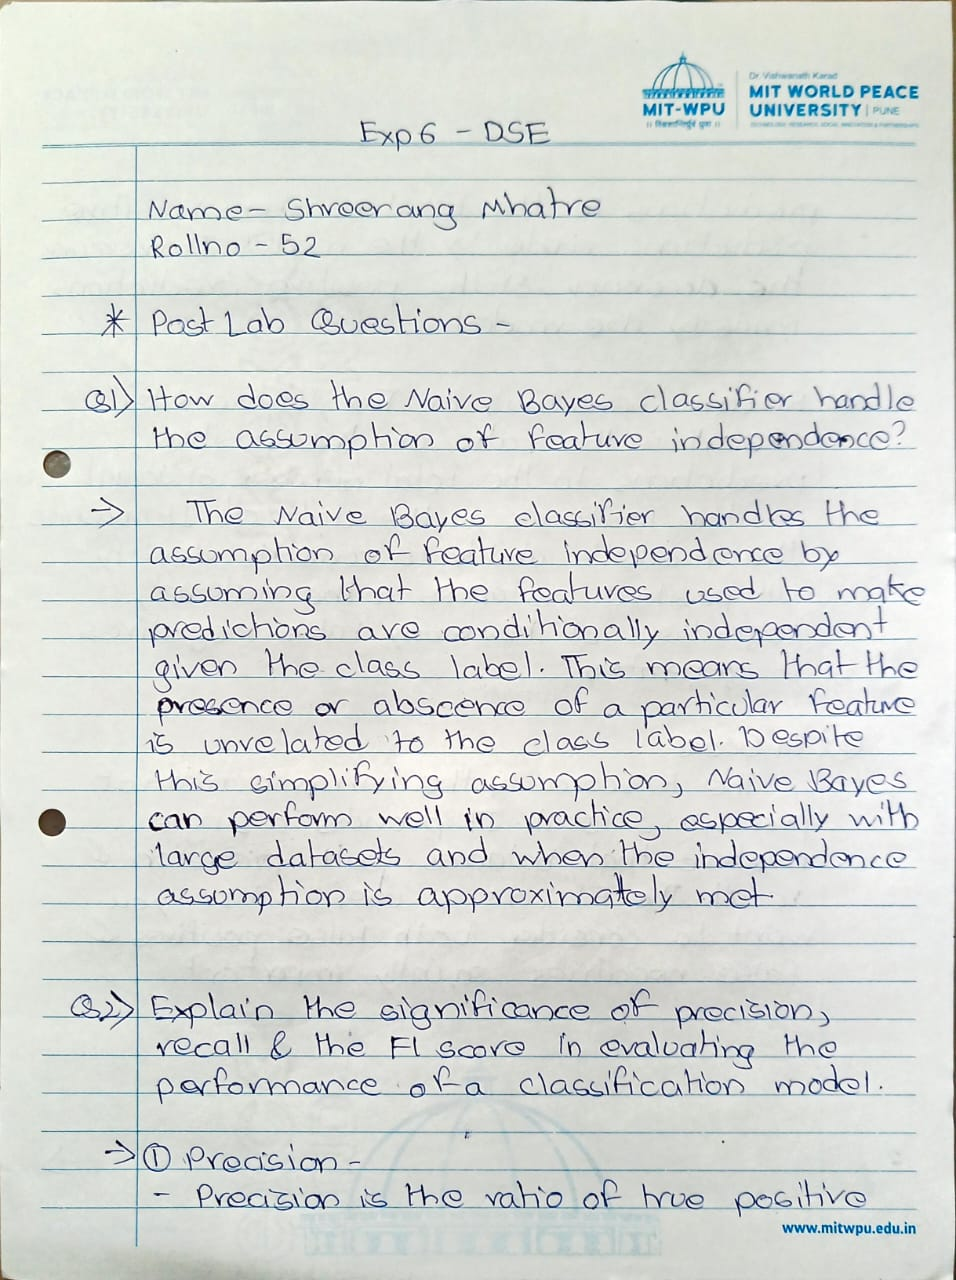 Dr. Vishwanath Karad
MIT WORLD PEACE
UNIVERSITY | PUNE
TECHNOLOGY, RESEARCH, SOCIAL INNOVATION & PARTNERSHIPS
MIT-WPU
॥ विश्वशान्तिर्ध्रुवं ध्रुवा ॥
Exp 6 - DSE
Name - Shreerang Mhatre
Rollno - 52
* Post Lab Questions -
Q1) How does the Naive Bayes classifier handle
the assumption of feature independence?
→ The Naive Bayes classifier handles the
assumption of feature independence by
assuming that the features used to make
predictions are conditionally independent
given the class label. This means that the
presence or abscence of a particular feature
is unrelated to the class label. Despite
this simplifying assumption, Naive Bayes
can perform well in practice, especially with
large datasets and when the independence
assumption is approximately met
Q2) Explain the significance of precision,
recall & the F1 score in evaluating the
performance of a classification model.
→ ① Precision -
- Precision is the ratio of true positive
www.mitwpu.edu.in